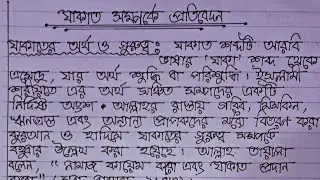 যাকাত সম্পর্কে প্রতিবেদন
যাকাতের অর্থ ও গুরুত্ব : যাকাত শব্দটি আরবি
ভাষার 'যাকা' শব্দ থেকে
এসেছে, যার অর্থ শুদ্ধি বা পরিশুদ্ধি। ইসলামী
শরীয়তে এর অর্থ সঞ্চিত সম্পদের একটি
নির্দিষ্ট অংশ আল্লাহর রাস্তায় গরিব, মিসকিন,
ঋণগ্রস্ত এবং অন্যান্য প্রাপকদের মধ্যে বিতরণ করা
কুরআন ও হাদিসে যাকাতের গুরুত্ব সম্পর্কে
বহুবার উল্লেখ করা হয়েছে। আল্লাহ তায়ালা
বলেন, "নামাজ কায়েম করো এবং যাকাত প্রদান